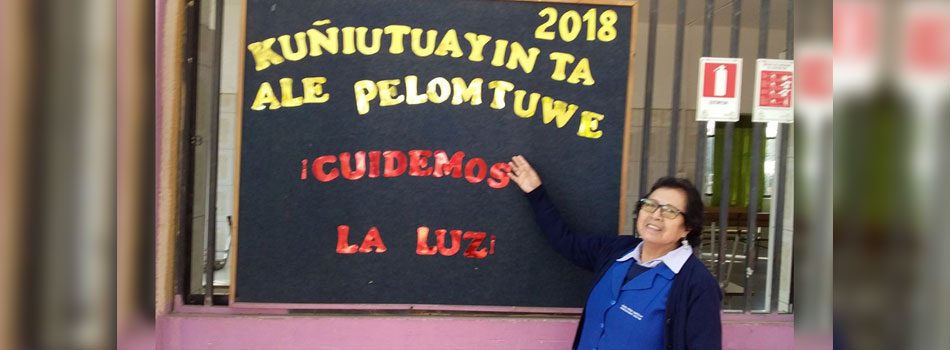 2018
KUÑIUTUAYIN TA
ALE PELOMTUWE
¡CUIDEMOS
LA LUZ¡